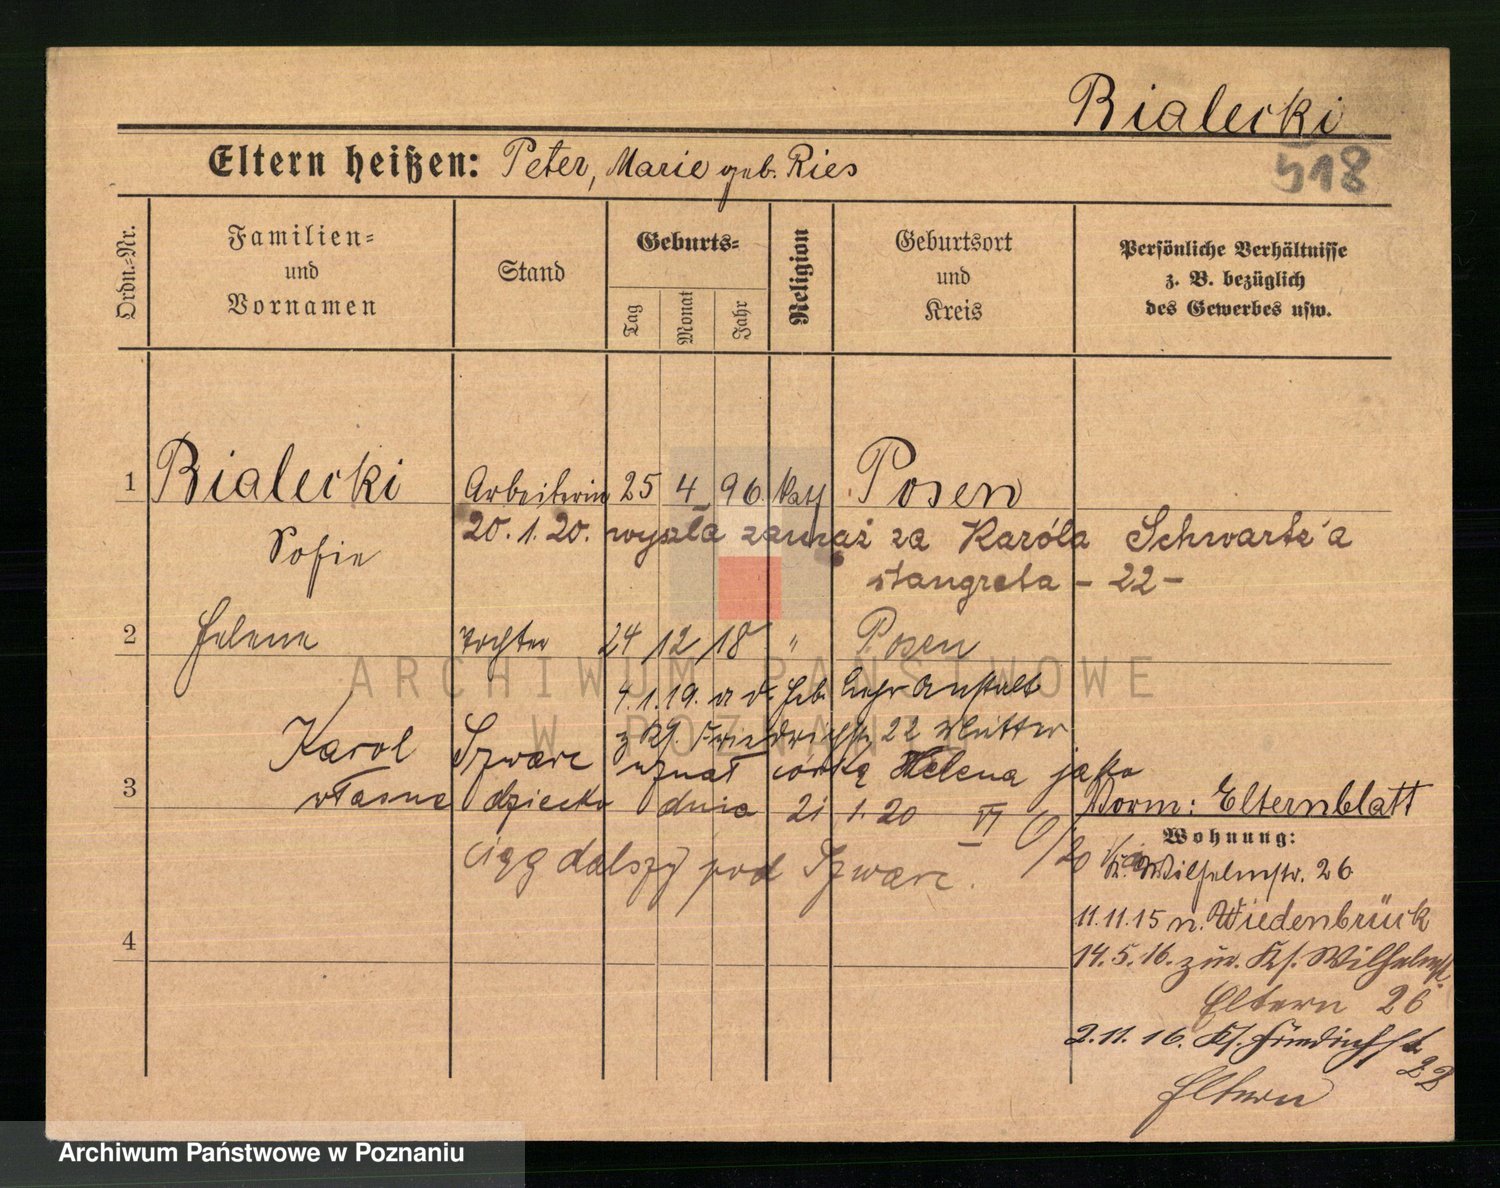 Bialecki
Eltern heißen: Peter, Marie geb. Ries
518
Ordn.=Nr.
Familien=
und
Vornamen
Stand
Geburts=
Tag
Monat
Jahr
Religion
Geburtsort
und
Kreis
Persönliche Verhältnisse
z. B. bezüglich
des Gewerbes usw.
1 Bialecki Arbeiterin 25 4 96. kath Posen
Sofie 20. 1. 20. wyszła zamąż za Karóla Schwartz'a
stangreta - 22 -
2 Helene Tochter 24/12/18 " Posen
4.1.19. a d. Heb. Lehr Anstalt
z Kf. Friedrichstr 22 Mutter
Karol Szwarc uznał córkę Helena jako
3 własne dziecko dnia 21 1. 20 VI
Vorm: Elternblatt
Wohnung:
ciąg dalszy pod Szwarc.
Kl. Wilhelmstr. 26
11.11.15 n. Wiedenbrück
4
14.5.16. zur. Kf. Wilhelmstr.
Eltern 26
2.11.16. Kf. Friedrichstr
22
Eltern
ARCHIWUM PAŃSTWOWE
W POZNANIU
Archiwum Państwowe w Poznaniu